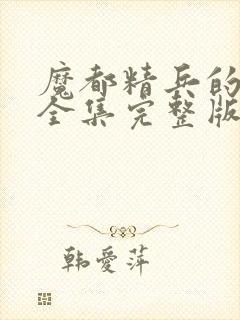 魔都精兵的
全集完整版
韩爱萍